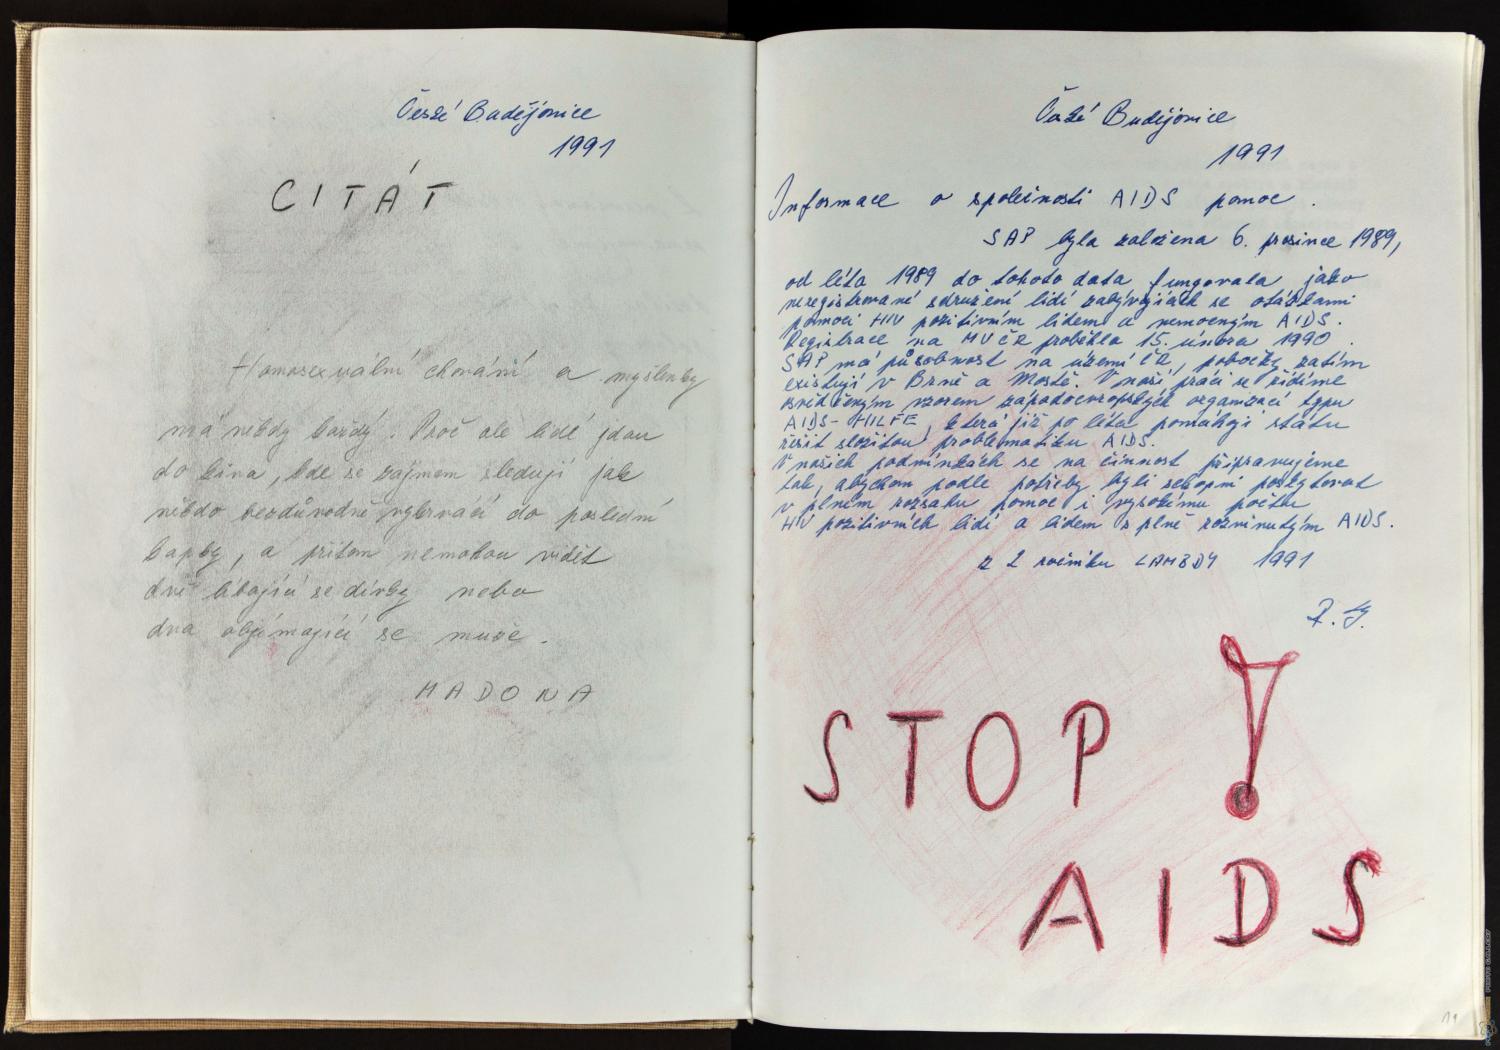 České Budějovice
1991
CITÁT
Homosexuální chování a myšlenky
má někdy každý. Proč ale lidé jdou
do kina, kde se zájmem sledují jak
někdo bezdůvodně vykrvácí do poslední
kapky, a přitom nemohou vidět
dvě líbající se dívky nebo
dva objímající se muže.
MADONA
České Budějovice
1991
Informace o společnosti AIDS pomoc.
SAP byla založena 6. prosince 1989,
od léta 1989 do tohoto data fungovala jako
neregistrované sdružení lidí zabývajících se otázkami
pomoci HIV pozitivním lidem a nemocným AIDS.
Registrace na MV ČR proběhla 15. února 1990.
SAP má působnost na území ČR, pobočky zatím
existují v Brně a Mostě. V naší práci se řídíme
osvědčeným vzorem západoevropských organizací typu
AIDS-HILFE, která již po léta pomáhají státu
řešit složitou problematiku AIDS.
V našich podmínkách se na činnost připravujeme
tak, abychom podle potřeby byli schopni poskytovat
v plném rozsahu pomoc i vysokému počtu
HIV pozitivních lidí a lidem s plně rozvinutým AIDS.
z 2 ročníku LAMBDY 1991
STOP !
AIDS
11